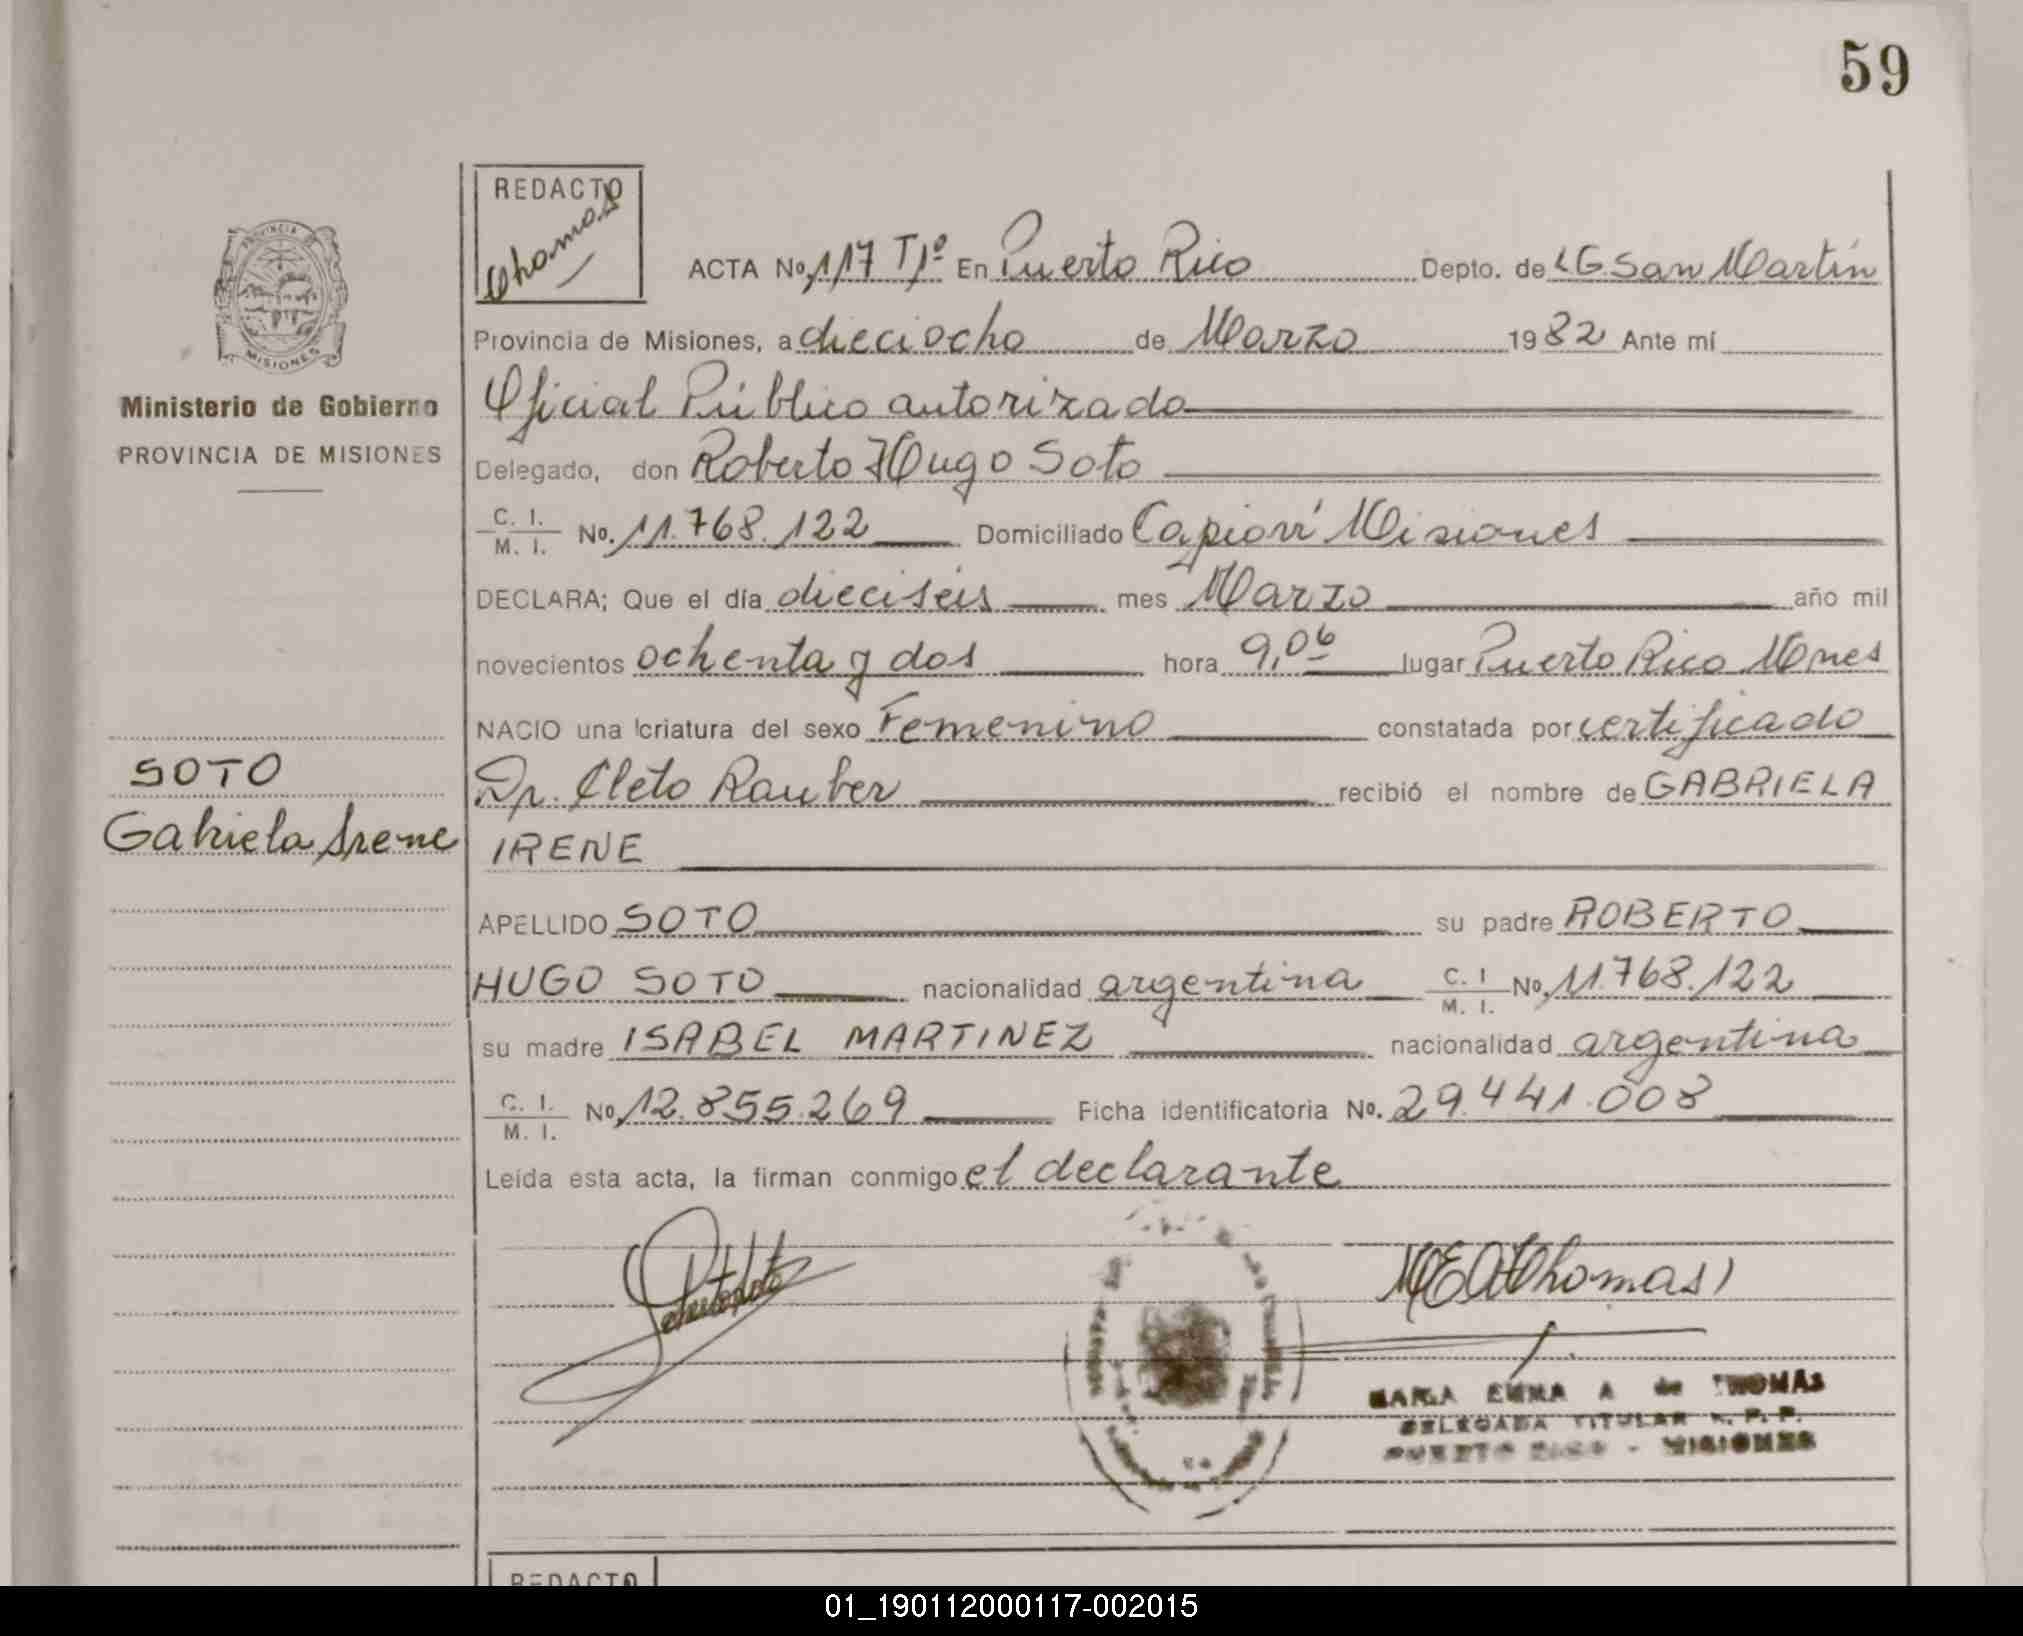 59
REDACTO
Thomas
ACTA No. 117 T1º En Puerto Rico Depto. de LG. San Martín
Provincia de Misiones, a dieciocho de Marzo 1982 Ante mí
Oficial Público autorizado
Delegado, don Roberto Hugo Soto
C. I. M. I. No. 11.768.122 Domiciliado Capioví Misiones
DECLARA; Que el día dieciséis mes Marzo año mil
novecientos ochenta y dos hora 9,06 lugar Puerto Rico Mnes
NACIO una criatura del sexo Femenino constatada por certificado
Dr. Cleto Rauber recibió el nombre de GABRIELA
IRENE
APELLIDO SOTO su padre ROBERTO
HUGO SOTO nacionalidad argentina C. I M. I. No. 11.768.122
su madre ISABEL MARTINEZ nacionalidad argentina
C. I. M. I. No. 12.855.269 Ficha identificatoria No. 29.441.008
Leída esta acta, la firman conmigo el declarante
MEAThomas
MARIA EMMA A de THOMAS
DELEGADA TITULAR R. P. P.
PUERTO RICO - MISIONES
PROVINCIA DE
MISIONES
Ministerio de Gobierno
PROVINCIA DE MISIONES
SOTO
Gabriela Irene
REDACTO
01_190112000117-002015